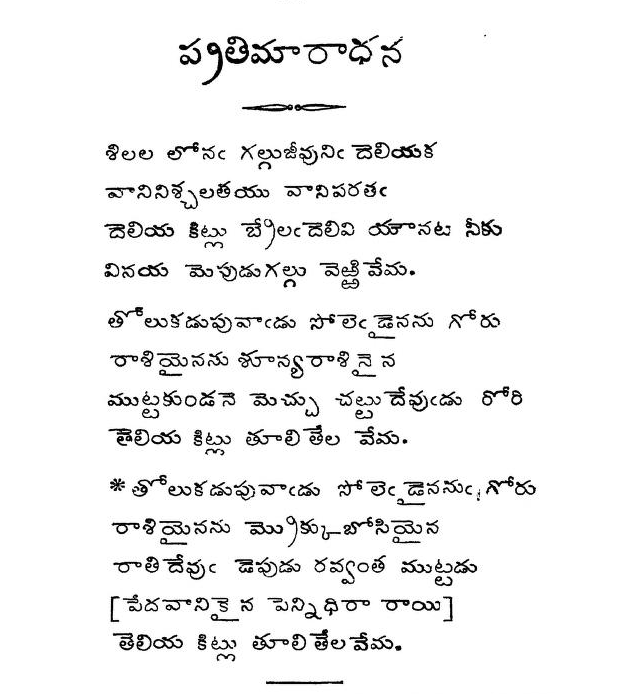 ప్రతిమారాధన
శిలల లోనఁ గల్గుజీవునిఁ దెలియక
వానినిశ్చలతయు వానిపరతఁ
దెలియ కిట్లు బ్రేలఁదెలివి యౌనట నీకు
వినయ మెపుడుగల్గు వెఱ్ఱివేమ.
తోలుకడుపువాఁడు సోలెఁడైనను గోరు
రాశియైనను శూన్యరాశినైన
ముట్టకుండనె మెచ్చు చట్టుదేవుఁడు రోరి
తెలియ కిట్లు తూలితేల వేమ.
*తోలుకడుపువాఁడు సోలెఁడైననుఁ గోరు
రాశియైనను మ్రొక్కుబోసియైన
రాతిదేవుఁ డెపుడు రవ్వంత ముట్టడు
[పేదవానికైన పెన్నిధిరా రాయి]
తెలియ కిట్లు తూలితేలవేమ.